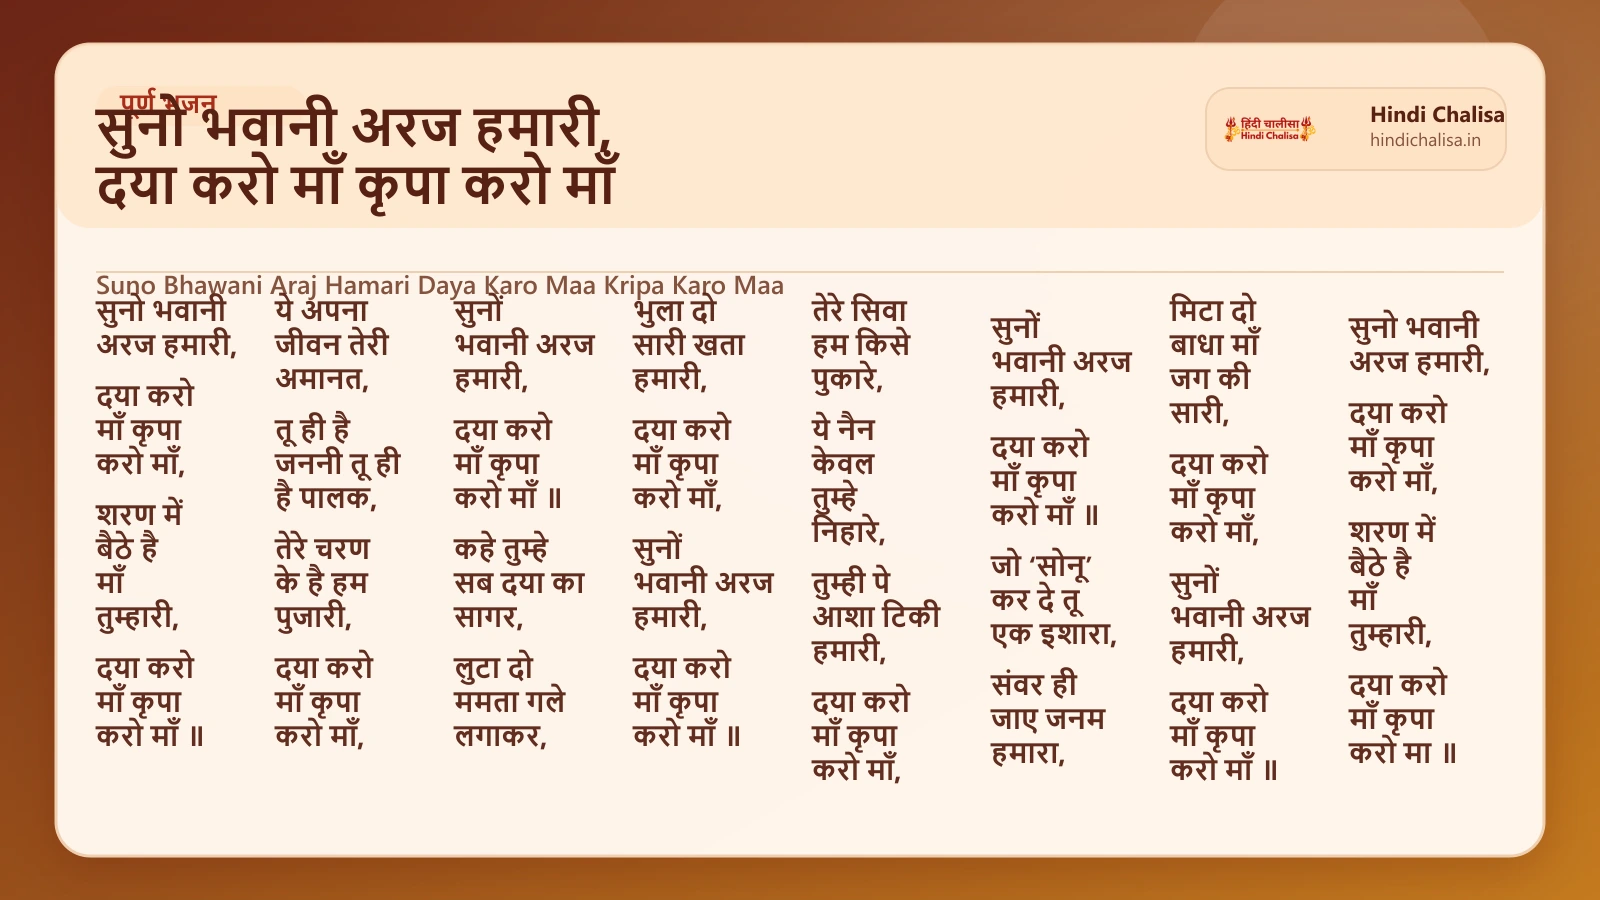 पूर्ण भजन
सुनो भवानी अरज हमारी,
दया करो माँ कृपा करो माँ
हिंदी चालीसा
Hindi Chalisa
Hindi Chalisa
hindichalisa.in
Suno Bhawani Araj Hamari Daya Karo Maa Kripa Karo Maa
सुनो भवानी
अरज हमारी,
दया करो
माँ कृपा
करो माँ,
शरण में
बैठे है
माँ
तुम्हारी,
दया करो
माँ कृपा
करो माँ ॥
ये अपना
जीवन तेरी
अमानत,
तू ही है
जननी तू ही
है पालक,
तेरे चरण
के है हम
पुजारी,
दया करो
माँ कृपा
करो माँ,
सुनों
भवानी अरज
हमारी,
दया करो
माँ कृपा
करो माँ ॥
कहे तुम्हे
सब दया का
सागर,
लुटा दो
ममता गले
लगाकर,
भुला दो
सारी खता
हमारी,
दया करो
माँ कृपा
करो माँ,
सुनों
भवानी अरज
हमारी,
दया करो
माँ कृपा
करो माँ ॥
तेरे सिवा
हम किसे
पुकारे,
ये नैन
केवल
तुम्हे
निहारे,
तुम्ही पे
आशा टिकी
हमारी,
दया करो
माँ कृपा
करो माँ,
सुनों
भवानी अरज
हमारी,
दया करो
माँ कृपा
करो माँ ॥
जो ‘सोनू’
कर दे तू
एक इशारा,
संवर ही
जाए जनम
हमारा,
मिटा दो
बाधा माँ
जग की
सारी,
दया करो
माँ कृपा
करो माँ,
सुनों
भवानी अरज
हमारी,
दया करो
माँ कृपा
करो माँ ॥
सुनो भवानी
अरज हमारी,
दया करो
माँ कृपा
करो माँ,
शरण में
बैठे है
माँ
तुम्हारी,
दया करो
माँ कृपा
करो मा ॥